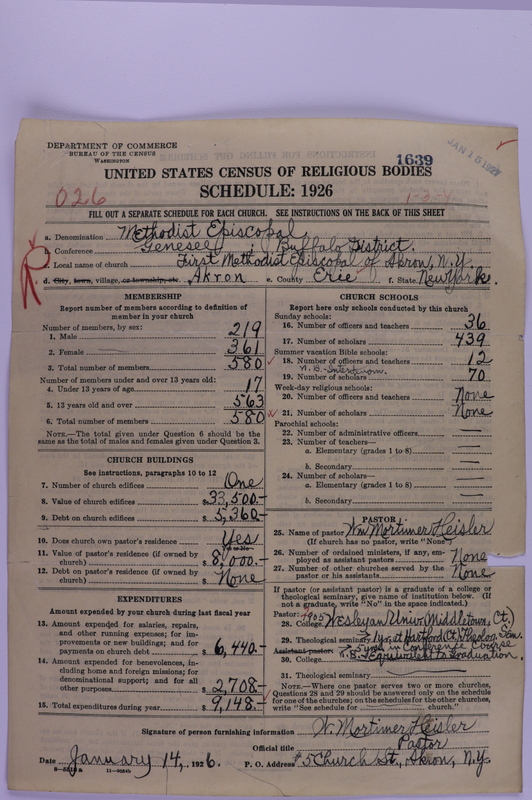 DEPARTMENT OF COMMERCE
BUREAU OF THE CENSUS
WASHINGTON
JAN 15 1927
1639
UNITED STATES CENSUS OF RELIGIOUS BODIES
SCHEDULE: 1926
026
1-3-4
FILL OUT A SEPARATE SCHEDULE FOR EACH CHURCH. SEE INSTRUCTIONS ON THE BACK OF THIS SHEET
a. Denomination Methodist Episcopal
b. Conference Genesee, Buffalo District.
c. Local name of church First Methodist Episcopal of Akron, N.Y.
d. City, town, village, or township, etc. Akron e. County Erie f. State New York.
MEMBERSHIP
Report number of members according to definition of
member in your church
Number of members, by sex:
1. Male 219
2. Female 361
3. Total number of members 580
Number of members under and over 13 years old:
4. Under 13 years of age 17
5. 13 years old and over 563
6. Total number of members 580
NOTE.—The total given under Question 6 should be the
same as the total of males and females given under Question 3.
CHURCH BUILDINGS
See instructions, paragraphs 10 to 12
7. Number of church edifices One
8. Value of church edifices $33,500.-
9. Debt on church edifices $5,360-
10. Does church own pastor's residence? Yes
Yes or No
11. Value of pastor's residence (if owned by
church) $8,000.-
12. Debt on pastor's residence (if owned by
church) $None
EXPENDITURES
Amount expended by your church during last fiscal year
13. Amount expended for salaries, repairs,
and other running expenses; for im-
provements or new buildings; and for
payments on church debt $6,440.-
14. Amount expended for benevolences, in-
cluding home and foreign missions; for
denominational support; and for all
other purposes $2,708.-
15. Total expenditures during year $9,148.-
CHURCH SCHOOLS
Report here only schools conducted by this church
Sunday schools:
16. Number of officers and teachers 36
17. Number of scholars 439
Summer vacation Bible schools:
18. Number of officers and teachers 12
19. Number of scholars 70
Week-day religious schools:
20. Number of officers and teachers None
21. Number of scholars None
Parochial schools:
22. Number of administrative officers —
23. Number of teachers—
a. Elementary (grades 1 to 8) —
b. Secondary —
24. Number of scholars—
a. Elementary (grades 1 to 8) —
b. Secondary —
PASTOR
25. Name of pastor Wm Mortimer Heisler
(If church has no pastor, write "None")
26. Number of ordained ministers, if any, em-
ployed as assistant pastors None
27. Number of other churches served by the
pastor or his assistants None
If pastor (or assistant pastor) is a graduate of college or
theological seminary, give name of institution below. (If
not a graduate, write "No" in the space indicated.)
Pastor: 1905
28. College Wesleyan Univ. Middletown, Ct.
29. Theological seminary 1 yr. at Hartford (Ct.) Theolog. Sem.
Assistant pastor: 5 yrs in Conference Course
30. College N.B. Equivalent to Graduation.
31. Theological seminary
NOTE.—Where one pastor serves two or more churches,
Questions 28 and 29 should be answered only on the schedule
for one of the churches; on the schedules for the other churches,
write "See schedule for church."
Signature of person furnishing information W. Mortimer Heisler
Official title Pastor
Date January 14, 1926. P. O. Address #5 Church St., Akron, N.Y.
8—5515a 11—9234b